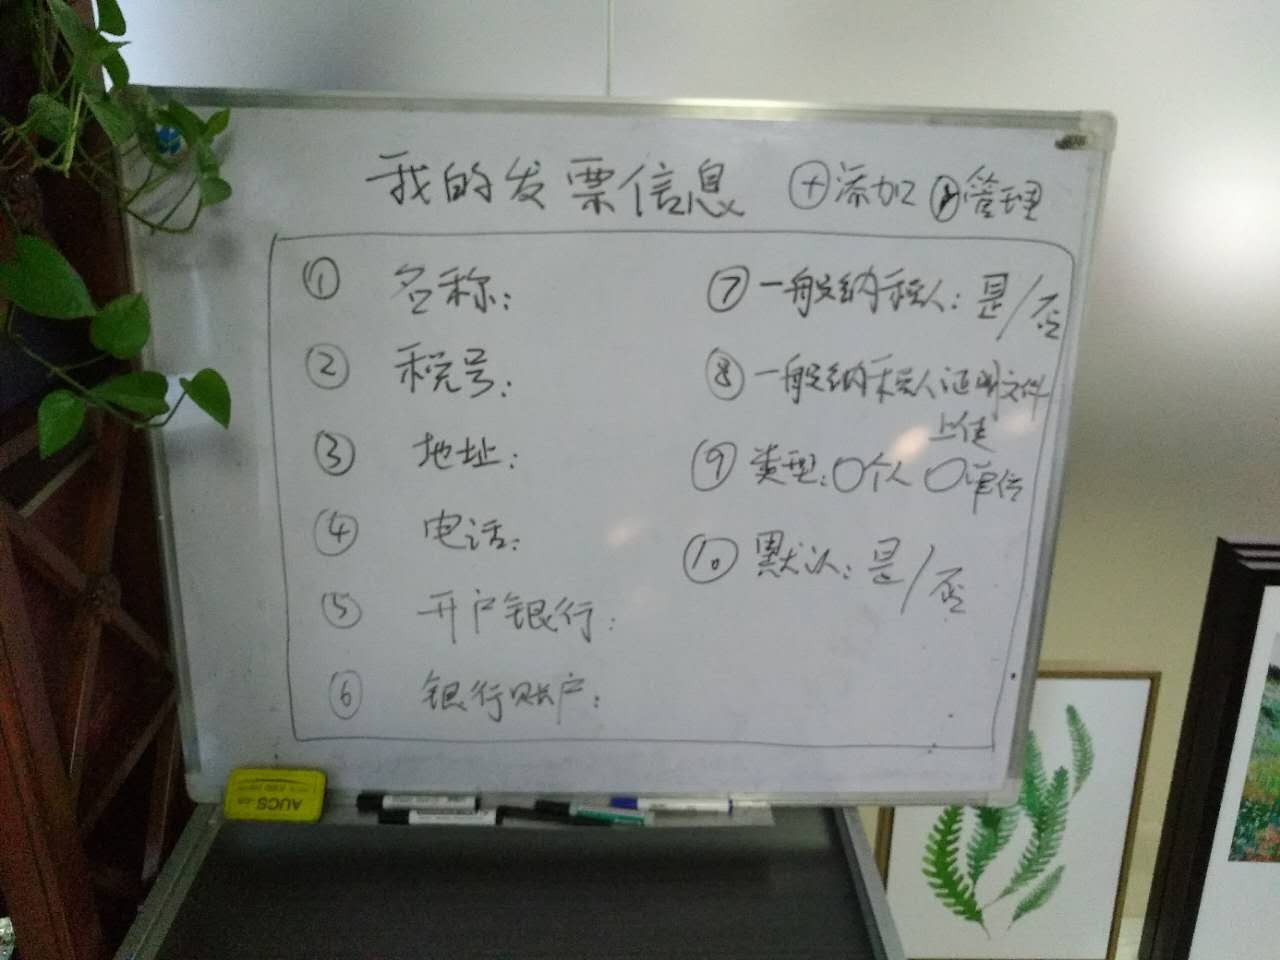 我的发票信息 ⊕添加 管理
① 名称：
② 税号：
③ 地址：
④ 电话：
⑤ 开户银行：
⑥ 银行账户：
⑦ 一般纳税人：是/否
⑧ 一般纳税人证明文件
上传
⑨ 类型：○个人 ○单位
⑩ 默认：是/否
AUCS